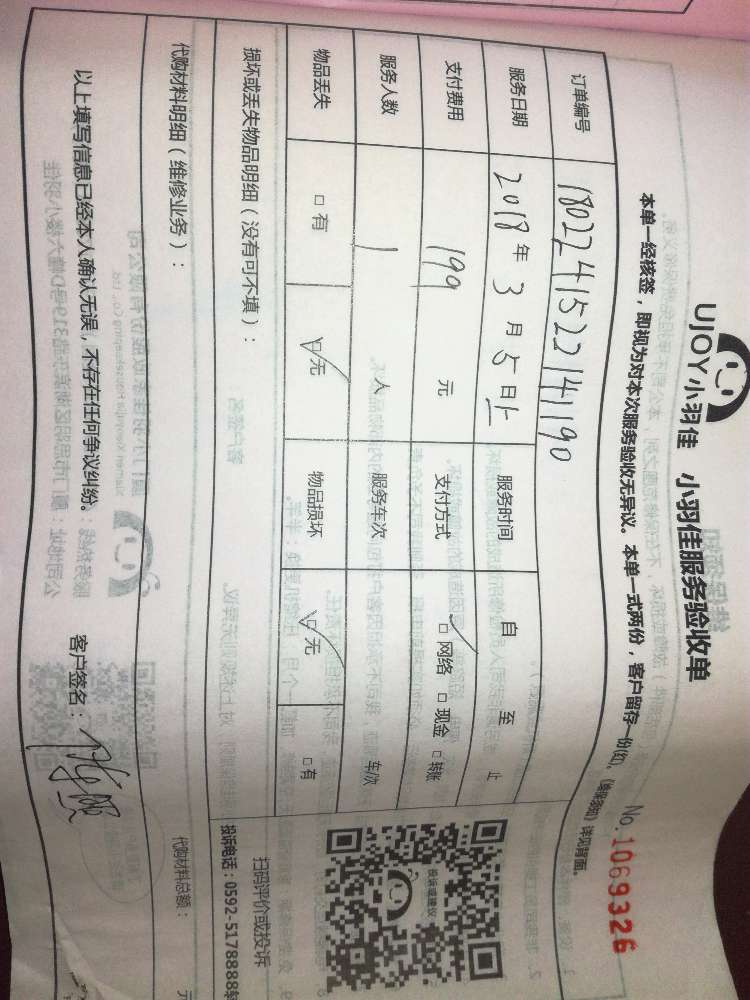 UJOY小羽佳 小羽佳服务验收单
No. 1069326
本单一经核签，即视为对本次服务验收无异议。本单一式两份，客户留存一份(红)。《维保须知》详见背面。
订单编号 180224152214190
服务日期 2018年3月5日上 服务时间 自 至 止
支付费用 199 元 支付方式 □网络 □现金 □转账
服务人数 1 人 服务车次 车/次
物品丢失 □有 □无 物品损坏 □无 □有
损坏或丢失物品明细（没有可不填）：
投诉或建议
扫码评价或投诉
投诉电话：0592-5178888转
代购材料明细（维修业务）： 代购材料总额： 元
以上填写信息已经本人确认无误，不存在任何争议纠纷。 客户签名：